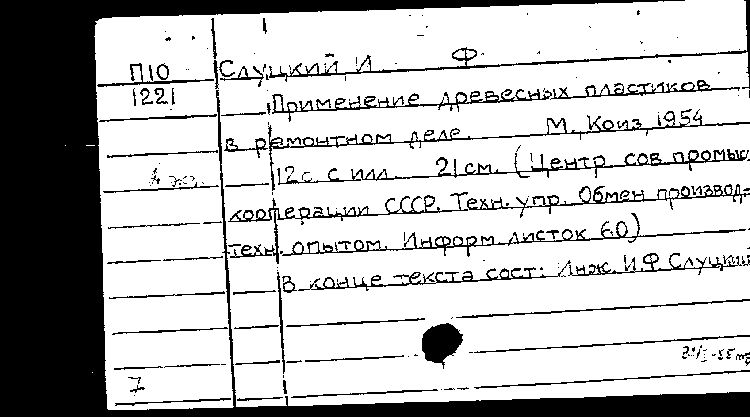 П10 Слуцкий, И Ф
1221 Применение древесных пластиков
в ремонтном деле. М., Коиз, 1954
12с. с илл. 21см. (Центр. сов промыс
кооперации СССР. Техн. упр. Обмен производ-
техн. опытом. Информ листок 60)
В конце текста сост: Инж. И.Ф Слуцкий
7